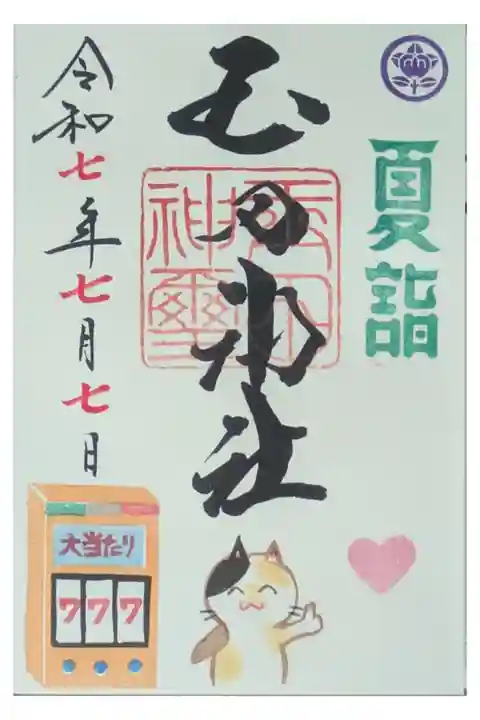 夏詣
玉田神社
神璽
令和七年七月七日
大当たり
777